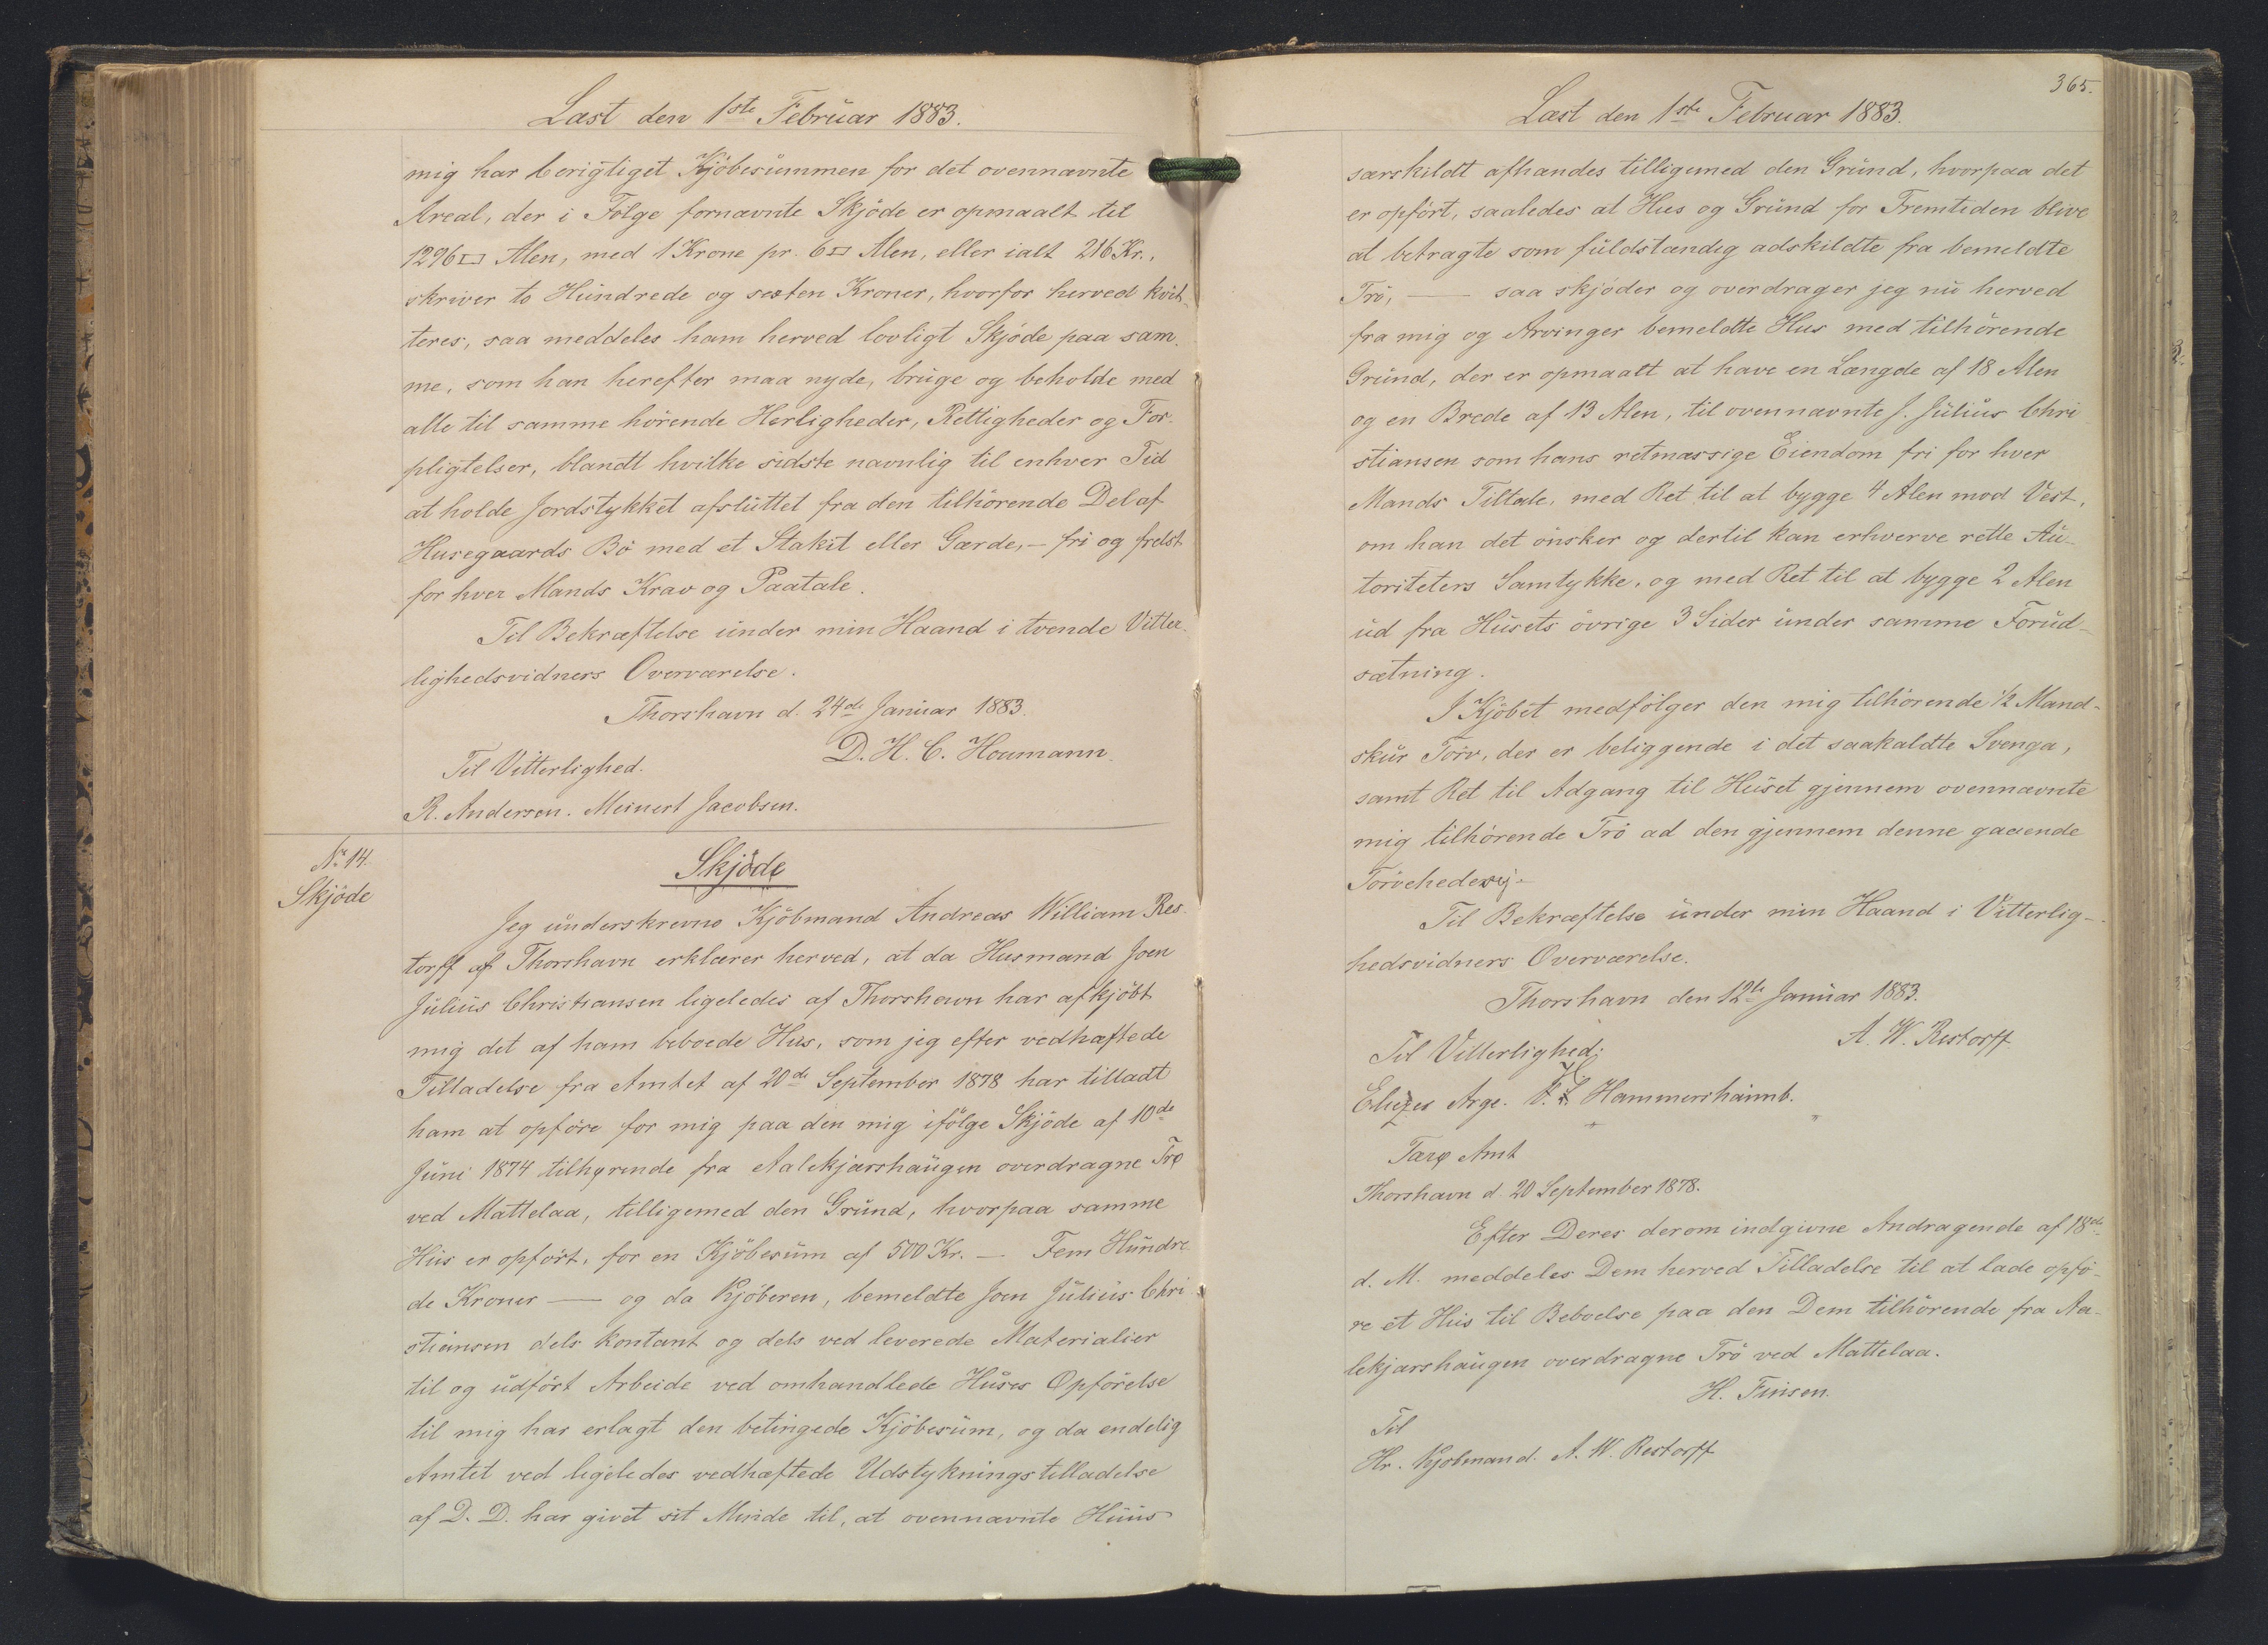 Læst den 1ste Februar 1883.
mig har berigtiget Kjöbesummen for det ovennævnte
Areal, der i Følge fornævnte Skjöde er opmaalt til
1296 □ Alen, med 1 Krone pr. 6 □ Alen, eller ialt 216 Kr.,
skriver to Hundrede og sexten Kroner, hvorfor herved kvit-
teres, saa meddeles ham herved lovligt Skjöde paa sam-
me, som han herefter maa nyde, bruge og beholde med
alle til samme hörende Herligheder, Rettigheder og For-
pligtelser, blandt hvilke sidste navnlig til enhver Tid
at holde Jordstykket afsluttet fra den tilhörende Del af
Husegaards Bö med et Stakit eller Gærde, – fri og frelst
for hver Mands Krav og Paatale.
Til Bekræftelse under min Haand i tvende Vitter-
lighedsvidners Overværelse.
Thorshavn d. 24de Januar 1883.
D. H. C. Houmann.
Til Vitterlighed.
R. Andersen. Meinert Jacobsen.
No 14.
Skjöde
Skjöde
Jeg underskrevne Kjöbmand Andreas William Res-
torff af Thorshavn erklærer herved, at da Husmand Joen
Julius Christiansen ligeledes af Thorshavn har afkjöbt
mig det af ham beboede Hus, som jeg efter vedhæftede
Tilladelse fra Amtet af 20de September 1878 har tilladt
ham at opföre for mig paa den mig ifölge Skjöde af 10de
Juni 1874 tilhørende fra Aalekjærshaugen overdragne Trø
ved Mattelaa, tilligemed den Grund, hvorpaa samme
Hus er opfört, for en Kjöbesum af 500 Kr. – Fem Hundre-
de Kroner — og da Kjöberen, bemeldte Joen Julius Chri-
stiansen dels kontant og dels ved leverede Materialier
til og udfört Arbeide ved omhandlede Huses Opförelse
til mig har erlagt den betingede Kjöbesum, og da endelig
Amtet ved ligeledes vedhæftede Udstykningstilladelse
af D. D. har givet sit Minde til, at ovennævnte Huus
365.
Læst den 1ste Februar 1883.
særskildt afhændes tilligemed den Grund, hvorpaa det
er opfört, saaledes at Hus og Grund for Fremtiden blive
at betragte som fuldstændig adskildte fra bemeldte
Trö, — saa skjöder og overdrager jeg nu herved
fra mig og Arvinger bemeldte Hus med tilhörende
Grund, der er opmaalt at have en Længde af 18 Alen
og en Brede af 13 Alen, til ovennævnte J. Julius Chri-
stiansen som hans retmæssige Eiendom fri for hver
Mands Tiltale, med Ret til at bygge 4 Alen mod Vest,
om han det önsker og dertil kan erhverve rette Au-
toriteters Samtykke, og med Ret til at bygge 2 Alen
ud fra Husets övrige 3 Sider under samme Forud-
sætning.
I Kjöbet medfölger den mig tilhörende 1/2 Mand-
skur Törv, der er beliggende i det saakaldte Svenga,
samt Ret til Adgang til Huset gjennem ovennævnte
mig tilhörende Trö ad den gjennem denne gaaende
Törvehedevej.
Til Bekræftelse under min Haand i Vitterlig-
hedsvidners Overværelse.
Thorshavn den 12te Januar 1883.
A. W. Restorff.
Til Vitterlighed:
Eliezes Arge. V. H. Hammershaimb.
Færø Amt
Thorshavn d. 20 September 1878.
Efter Deres derom indgivne Andragende af 18de
d. M. meddeles Dem herved Tilladelse til at lade opfö-
re et Hus til Beboelse paa den Dem tilhörende fra Aa-
lekjærshaugen overdragne Trö ved Mattelaa.
H. Finsen.
Til
Hr. Kjöbmand. A. W. Restorff